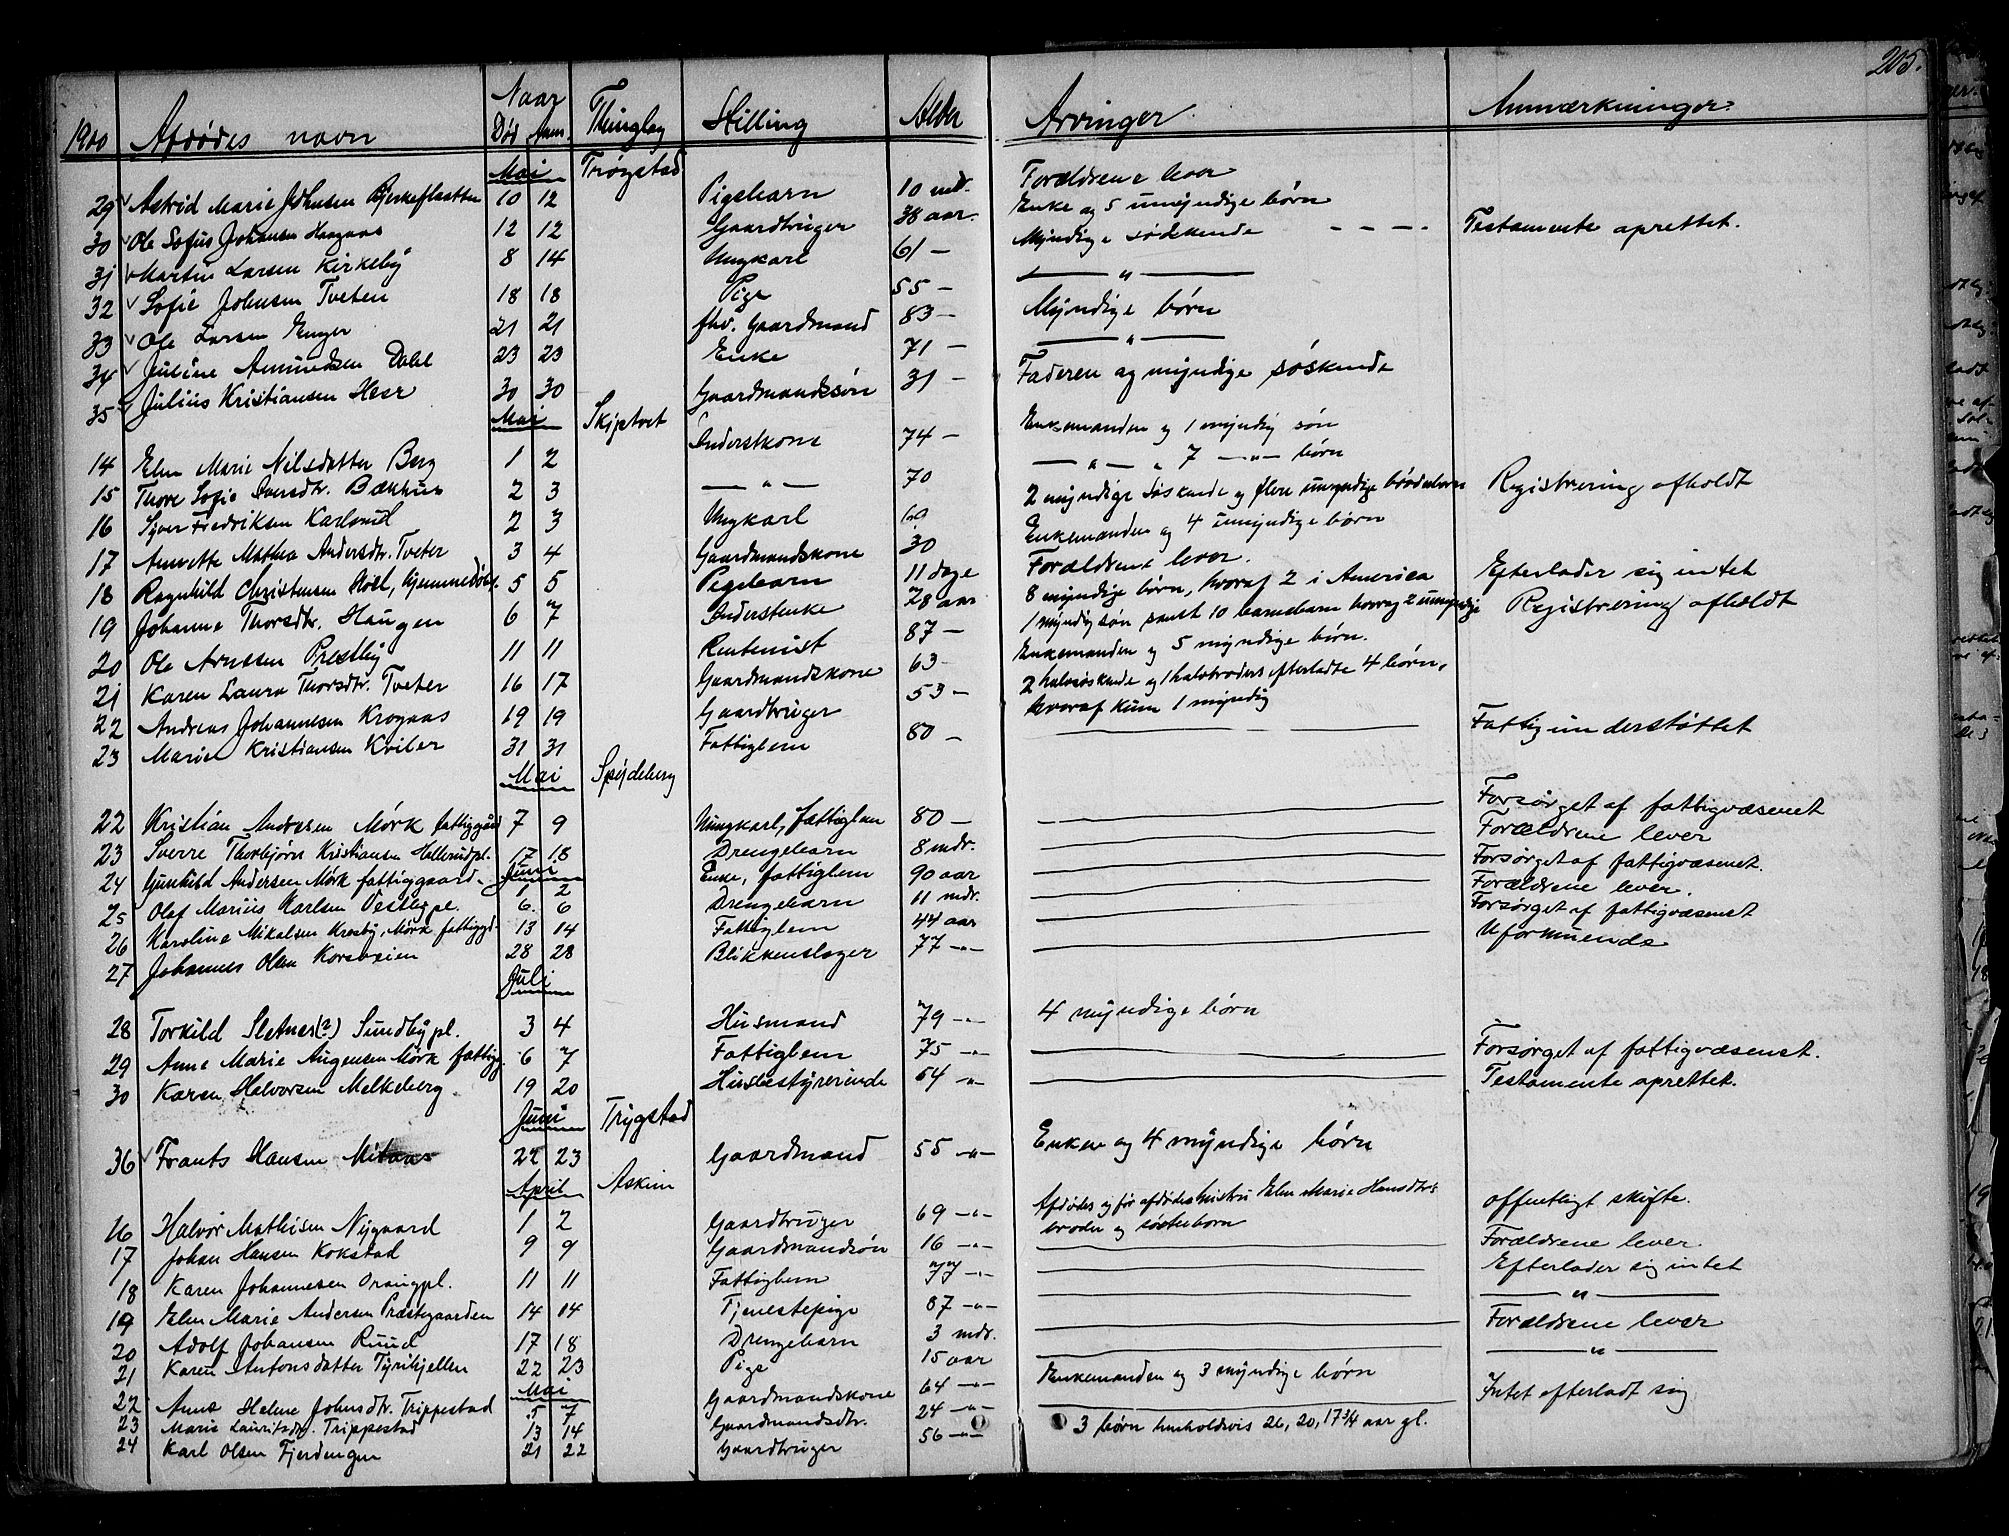 205.
1900 Afdødes navn Naar Død Anm. Thinglag Stilling Alder Arvinger. Anmærkninger.
Mai Trøgstad
29 Astrid Marie Johnsen Bjerkeflaatten 10 12 Pigebarn 10 mdr. Forældrene lever
30 Ole Sofus Johansen Haagaas 12 12 Gaardbruger 38 aar. Enke og 5 umyndige børn
31 Martin Larsen Kirkeby 8 14 Ungkarl 61 — Myndige sødskende - - - - Testamente oprettet.
32 Sofie Johnsen Tveten 18 18 Pige 55 — — „ —
33 Ole Larsen Enger 21 21 fhv. Gaardmand 83 — Myndige børn
34 Juline Amundsen Dahl 23 23 Enke 71 — — „ —
35 Julius Kristiansen Heer 30 30 Gaardmandssøn 31 — Faderen og myndige søskende
Mai Skiptvet
14 Elen Marie Nilsdatter Berg 1 2 Inderstkone 74 — Enkemanden og 1 myndig søn
15 Thore Sofie Iversdtr. Bækhus 2 3 — „ — 70 — „ — „ 7 — „ — børn
16 Syver Fredriksen Karlsrud 2 3 Ungkarl 60 2 myndige søskende og flere umyndige brøderbørn Registrering afholdt
17 Annette Mathea Andersdtr. Tveter 3 4 Gaardmandskone 30 Enkemanden og 4 umyndige børn
18 Ragnhild Christensen Hoel, hjemmedøbt. 5 5 Pigebarn 11 dage Forældrene lever.
19 Johanne Thorsdtr. Haugen 6 7 Inderstenke 78 aar 8 myndige børn, hvoraf 2 i America Efterlader sig intet
20 Ole Arnesen Prestby 11 11 Rentenist 87 — 1 myndig søn samt 10 barnebarn hvorag 2 umyndige Registrering afholdt
21 Karen Laura Thorsdtr. Tveter 16 17 Gaardmandskone 63 — Enkemanden og 5 myndige børn.
22 Andreas Johannesen Krogaas 19 19 Gaardbruger 53 — 2 halvsøskende og 1 halvbroders efterladte 4 børn,
hvoraf kun 1 myndig
23 Marie Kristiansen Kviler 31 31 Fattiglem 80 — — Fattigunderstøttet
Mai Spydeberg
22 Kristian Andresen Mørk fattiggård 7 9 Ungkarl, fattiglem 80 — Forsørget af fattigvæsenet
23 Sverre Thorbjørn Kristiansen Hellerudpl. 17 18 Drengebarn 8 mdr. Forældrene lever
Juni
24 Gunhild Andersen Mørk fattiggaard. 1 2 Enke, fattiglem 90 aar Forsørget af fattigvæsenet.
25 Olaf Marius Karlsen Vestbypl. 6. 6 Drengebarn 11 mdr. Forældrene lever.
26 Karoline Mikalsen Kresby, Mørk fattiggd. 13 14 Fattiglem 44 aar Forsørget af fattigvæsenet
27 Johannes Olsen Korsveien 28 28 Blikkenslager 77 -„- Uformuende
Juli
28 Torkild Sletner(?) Sundbypl. 3 4 Husmand 79 -„- 4 myndige børn
29 Anne Marie Augensen Mørk fattigg. 6 7 Fattiglem 75 -„- Forsørget af fattigvæsenet.
30 Karen Halvorsen Melkeberg 19 20 Husbestyrerinde 64 -„- Testamente oprettet.
Juni Trygstad
36 Frants Hansen 22 23 Gaardmand 55 -„- Enken og 4 myndige børn
April Askim
16 Halvor Mathisen Nygaard 1 2 Gaardbruger 69 -„- Afdødes og før afdøde hustru Elen Marie Hansdtrs offentligt skifte.
broder og søsterbørn
17 Johan Hansen Kokstad 9 9 Gaardmandssøn 16 -„- Forældrene lever.
18 Karen Johannesen Oraugpl. 11 11 Fattiglem 77 -„- Efterlader sig intet
19 Elen Marie Andersen Præstegaarden 14 14 Tjenestepige 87 -„- — „ —
20 Adolf Johansen Ruud 17 18 Drengebarn 3 mdr. Forældrene lever
21 Karen Antonsdatter Tyrihjellen 22 23 Pige 15 aar — „ —
Mai
22 Anne Helene Johnsdtr. Trippestad 5 7 Gaardmandskone 64 -„- Enkemanden og 3 myndige børn
23 Marie Lauritsdtr. Trippestad 13 14 Gaardmandsdtr. 24 -„- Intet efterladt sig
24 Karl Olsen Fjerdingen 21 22 Gaardbruger 56 -„- 3 børn henholdsvis 26, 20, 17 3/4 aar gl.